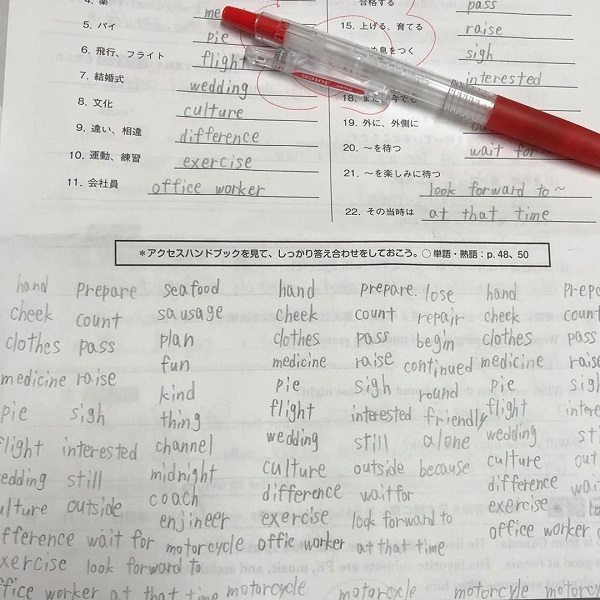 4. 薬 me
5. パイ pie
6. 飛行、フライト flight
7. 結婚式 wedding
8. 文化 culture
9. 違い、相違 difference
10. 運動、練習 exercise
11. 会社員 office worker
合格する pass
15. 上げる、育てる raise
息をつく sigh
interested
18.
19. 外に、外側に
20. ～を待つ wait for
21. ～を楽しみに待つ
look forward to～
22. その当時は at that time
＊アクセスハンドブックを見て、しっかり答え合わせをしておこう。○単語・熟語：p. 48、50
hand prepare seafood hand prepare. lose hand prepa
cheek count sausage cheek count repair cheek count
clothes pass plan clothes pass begin clothes pass
medicine raise fun medicine raise continued medicine raise
pie sigh kind pie sigh round pie sigh
flight interested thing flight interested friendly flight intere
wedding still channel wedding still alone wedding sti
culture outside midnight culture outside because culture out
difference wait for coach difference wait for difference wai
exercise look forward to enjineer exercise look forward to exercise look
office worker at that time motorcycle offic worker at that time office worker
motorcycle motorcycle motorcycle motorcy